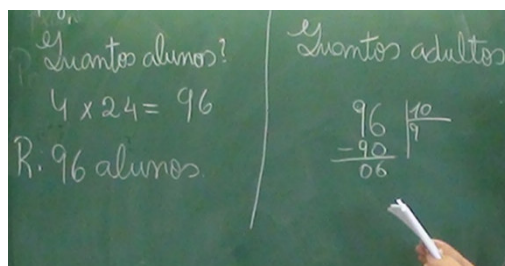 Quantos alunos?
4 x 24 = 96
R. 96 alunos.
Quantos adultos
96 10
-90 9
06